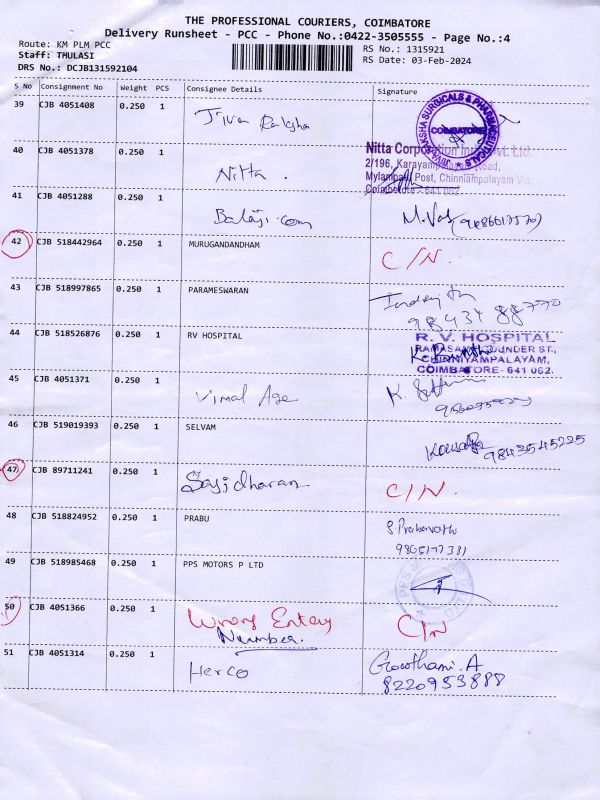 THE PROFESSIONAL COURIERS, COIMBATORE
Delivery Runsheet - PCC - Phone No.:0422-3505555 - Page No.:4
Route: KM PLM PCC
RS No.: 1315921
Staff: THULASI
RS Date: 03-Feb-2024
DRS No.: DCJB131592104
S No Consignment No Weight PCS Consignee Details Signature
39 CJB 4051408 0.250 1 Jiva Raksha
JIVA RAKSHA SURGICALS & PHARMACEUTICALS
COIMBATORE
40 CJB 4051378 0.250 1 Nitta.
Nitta Corporation India Pvt. Ltd.
2/196, Karayampalayam Road,
Mylampatti Post, Chinniampalayam Via,
Coimbatore - 641 062.
41 CJB 4051288 0.250 1 Balaji.com
42 CJB 518442964 0.250 1 MURUGANDANDHAM C/N.
43 CJB 518997865 0.250 1 PARAMESWARAN
98434 88770
44 CJB 518526876 0.250 1 RV HOSPITAL
R. V. HOSPITAL
RAMASAMY GOUNDER ST.,
CHINNIYAMPALAYAM,
COIMBATORE- 641 062.
45 CJB 4051371 0.250 1 Vimal Age
46 CJB 519019393 0.250 1 SELVAM
9843545225
47 CJB 89711241 0.250 1 Sasidharan C/N.
48 CJB 518824952 0.250 1 PRABU
49 CJB 518985468 0.250 1 PPS MOTORS P LTD
50 CJB 4051366 0.250 1 Wrong Entry C/N
Number.
51 CJB 4051314 0.250 1 Herco Gowthami.A
8220953888